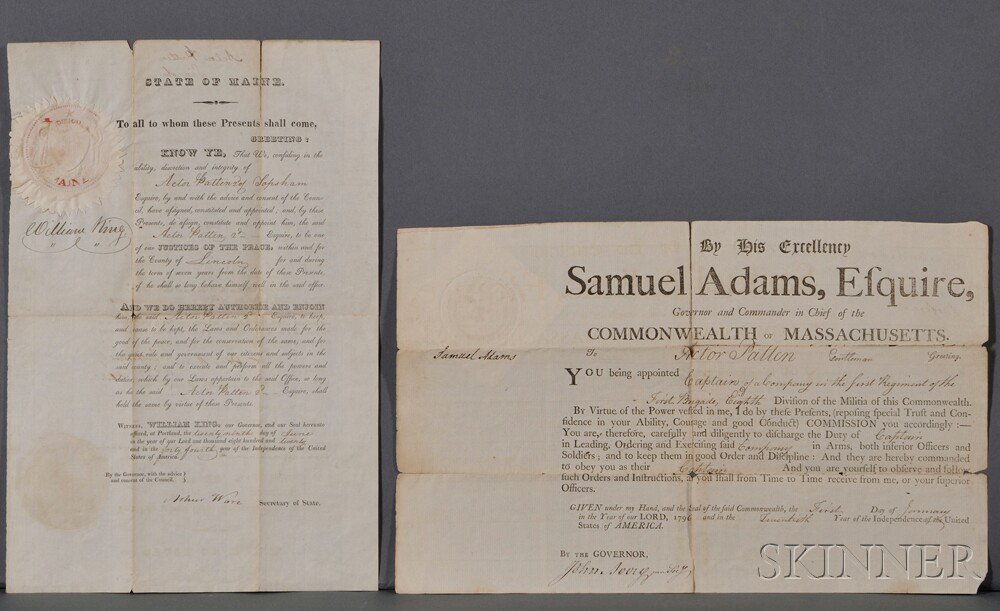 STATE OF MAINE.
To all to whom these Presents shall come,
GREETING:
KNOW YE, That We, confiding in the
ability, discretion and integrity of
Actor Patten 2d of Topsham
Esquire, by and with the advice and consent of the Coun-
cil, have assigned, constituted and appointed; and, by these
Presents, do assign, constitute and appoint him, the said
Actor Patten 2d Esquire, to be one
of our JUSTICES OF THE PEACE, within and for
the County of Lincoln for and during
the term of seven years from the date of these Presents,
if he shall so long behave himself well in the said office.
AND WE DO HEREBY AUTHORIZE AND ENJOIN
him the said Actor Patten 2d Esquire, to keep,
and cause to be kept, the Laws and Ordinances made for
the good of the peace, and for the conservation of the same; and for
the quiet rule and government of our citizens and subjects in the
said county; and to execute and perform all the powers and
duties, which by our Laws appertain to the said Office, so long
as he the said Actor Patten 2d Esquire, shall
hold the same by virtue of these Presents.
WITNESS, WILLIAM KING, our Governor, and our Seal hereunto
affixed, at Portland, the day of June
in the year of our Lord one thousand eight hundred and twenty
and in the forty fourth year of the Independence of the United
States of America.
By the Governor, with the advice
and consent of the Council.
Ashur Ware Secretary of State.
MAINE
William King
By His Excellency
Samuel Adams, Eſquire,
Governor and Commander in Chief of the
COMMONWEALTH OF MASSACHUSETTS.
Samuel Adams
To Actor Patten Gentleman Greeting.
YOU being appointed Captain of a Company in the first Regiment of the
First Brigade, Eighth Diviſion of the Militia of this Commonwealth.
By Virtue of the Power veſted in me, I do by theſe Preſents, (repoſing ſpecial Truſt and Con-
fidence in your Ability, Courage and good Conduct) COMMISSION you accordingly:—
You are, therefore, carefully and diligently to diſcharge the Duty of Captain
in Leading, Ordering and Exerciſing ſaid Company in Arms, both inferior Officers and
Soldiers; and to keep them in good Order and Diſcipline: And they are hereby commanded
to obey you as their Captain And you are yourſelf to obſerve and follow
ſuch Orders and Inſtructions, as you ſhall from Time to Time receive from me, or your ſuperior
Officers.
GIVEN under my Hand, and the Seal of the ſaid Commonwealth, the First Day of January
in the Year of our LORD, 1796 and in the Twentieth Year of the Independence of the United
States of AMERICA.
BY THE GOVERNOR,
John Avery jun Secy
SKINNER